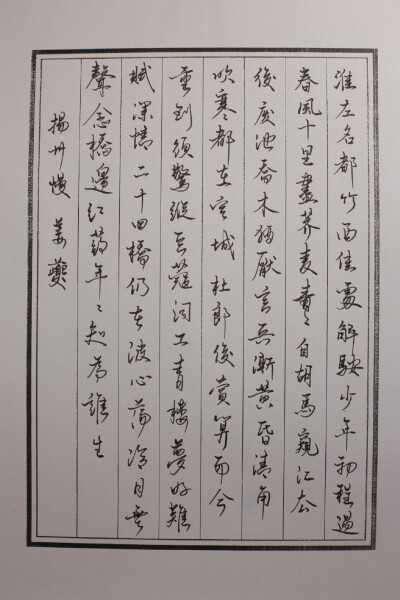 淮左名都竹西佳處解鞍少年初程過
春風十里盡荠麦青〻自胡馬窺江去
後廢池喬木猶厭言兵漸黃昏清角
吹寒都在空城杜郎俊賞算而今
重到須驚縱豆蔻詞工青樓夢好難
賦深情二十四橋仍在波心蕩冷月無
聲念橋邊紅藥年〻知為誰生
揚州慢 姜夔